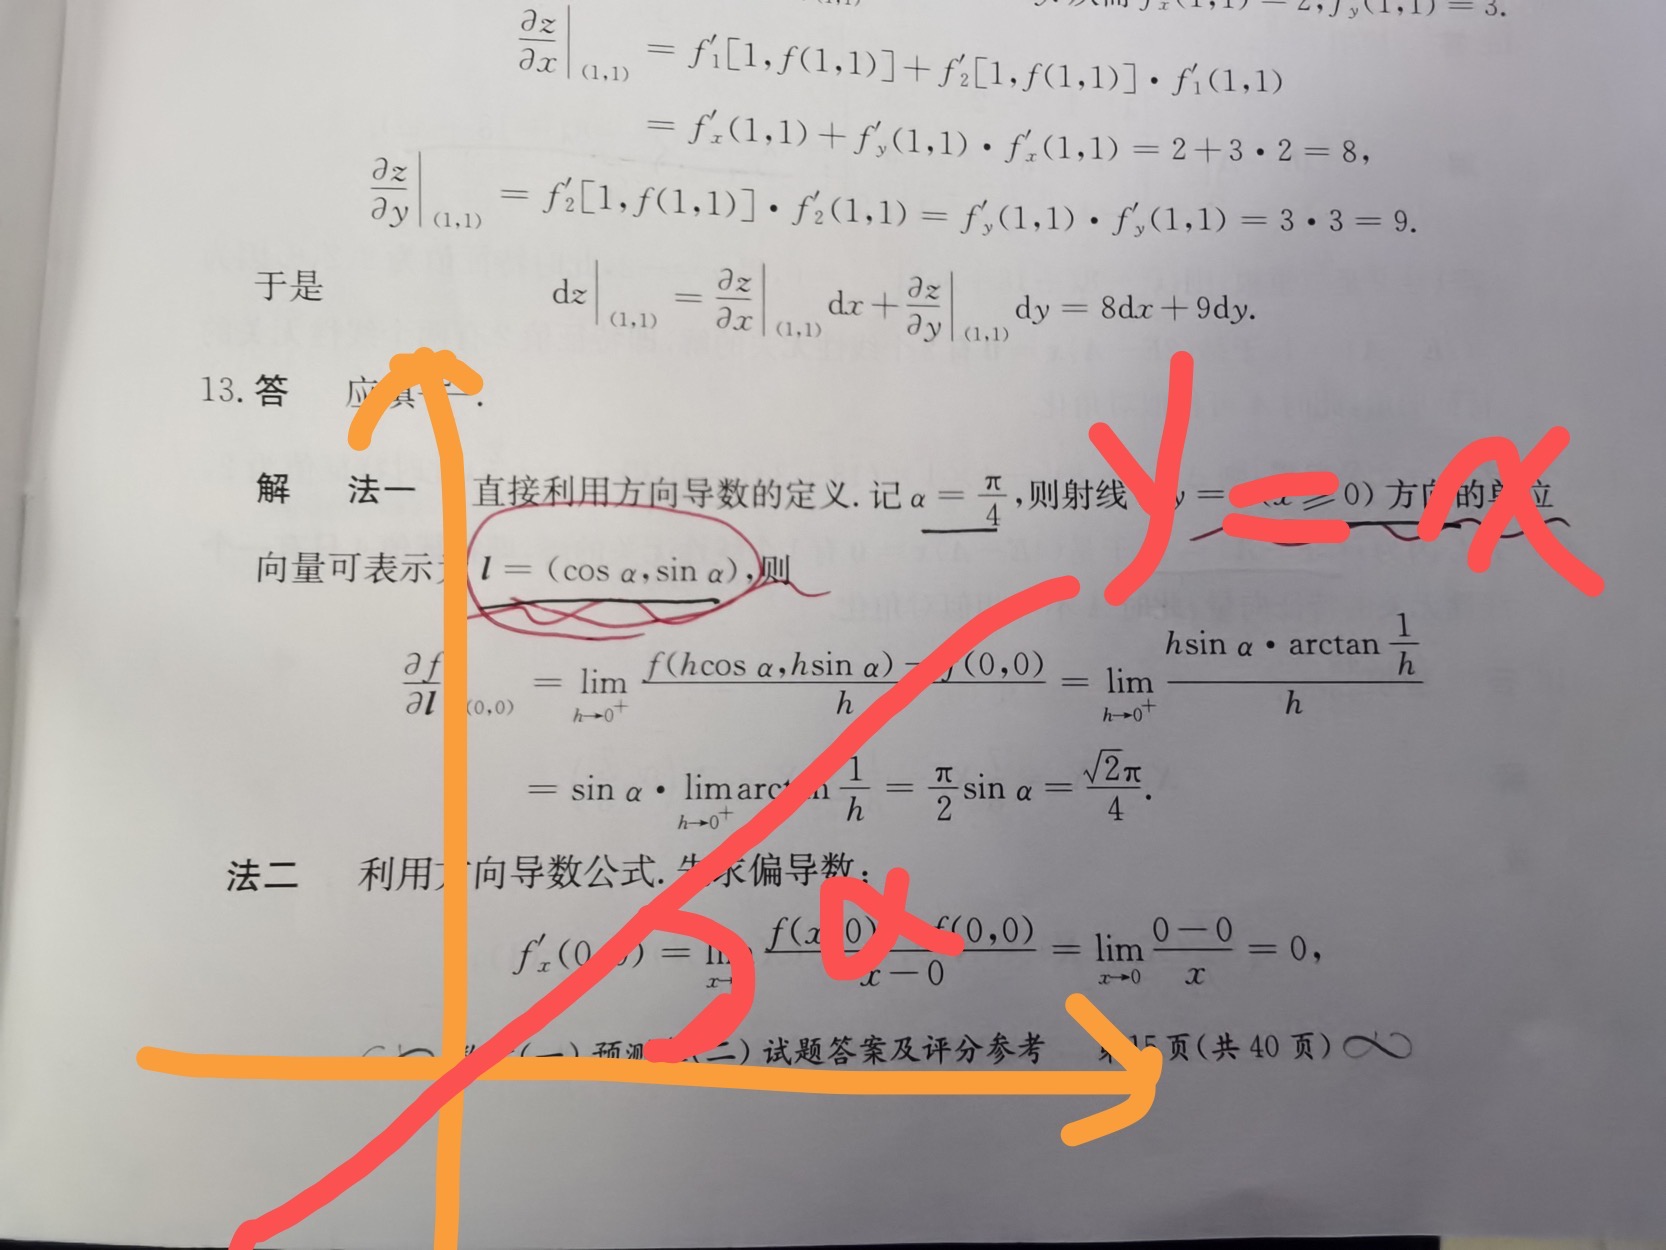 f'ₓ(1,1) = 2, f'ᵧ(1,1) = 3.
∂z/∂x|(1,1) = f'₁[1,f(1,1)]+f'₂[1,f(1,1)]·f'₁(1,1)
= f'ₓ(1,1)+f'ᵧ(1,1)·f'ₓ(1,1)=2+3·2=8,
∂z/∂y|(1,1) = f'₂[1,f(1,1)]·f'₂(1,1)=f'ᵧ(1,1)·f'ᵧ(1,1)=3·3=9.
于是 dz|(1,1) = ∂z/∂x|(1,1) dx+∂z/∂y|(1,1) dy=8dx+9dy.
13.答 应填 .
y=x
解 法一 直接利用方向导数的定义.记α=π/4,则射线 y= (x≥0)方向的单位
向量可表示 l=(cos α,sin α),则
∂f/∂l|(0,0) = lim h→0⁺ (f(hcos α,hsin α)-f(0,0))/h = lim h→0⁺ (hsin α·arctan 1/h)/h
= sin α·lim h→0⁺ arctan 1/h = π/2 sin α = √2π/4.
法二 利用方向导数公式.先求偏导数:
α
f'ₓ(0,0)=lim x→0 (f(x,0)-f(0,0))/(x-0) = lim x→0 (0-0)/x = 0,
数学(一)预测卷(二)试题答案及评分参考 第15页(共40页)